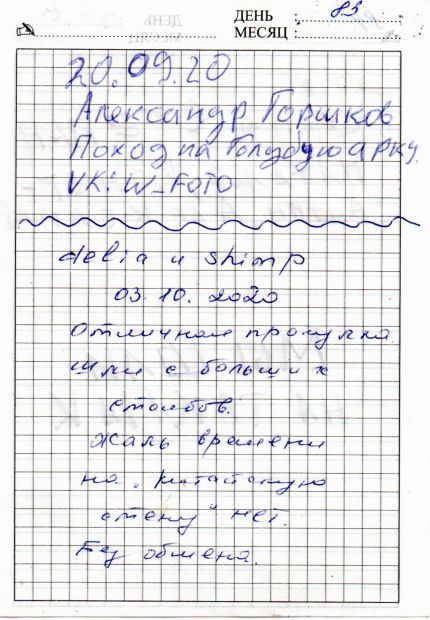 ДЕНЬ 83
МЕСЯЦ
20.09.20
Александр Горшков
Поход на Голубую арку.
VK: W_FOTO
delia и shimp
03.10.2020
Отличная прогулка
шли с больших
столбов.
Жаль времени
на "китайскую
стену" нет.
Без обмена.